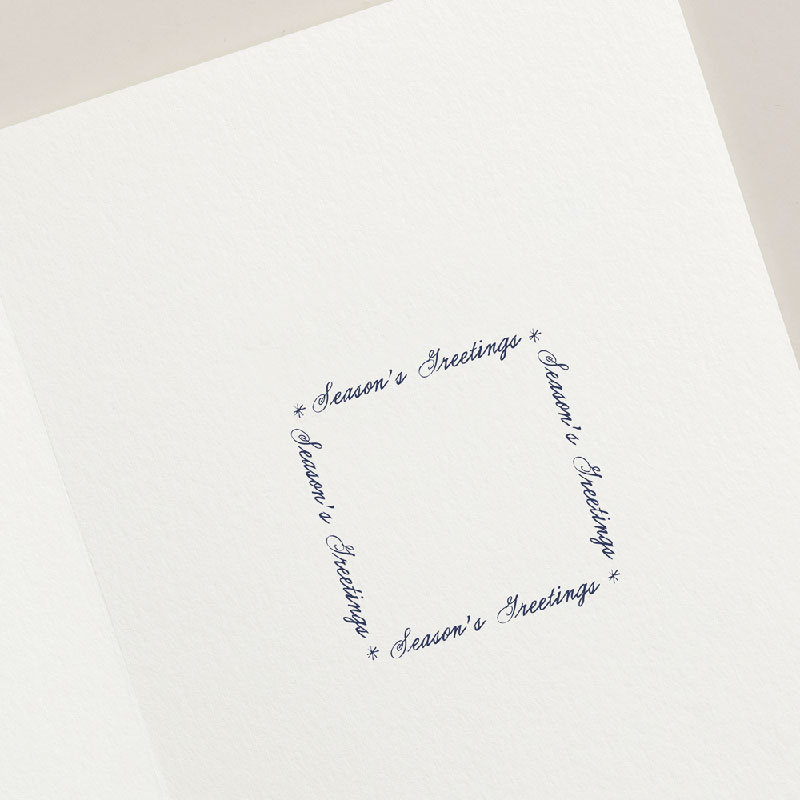 * Season's Greetings *
Season's Greetings
Season's Greetings
* Season's Greetings *